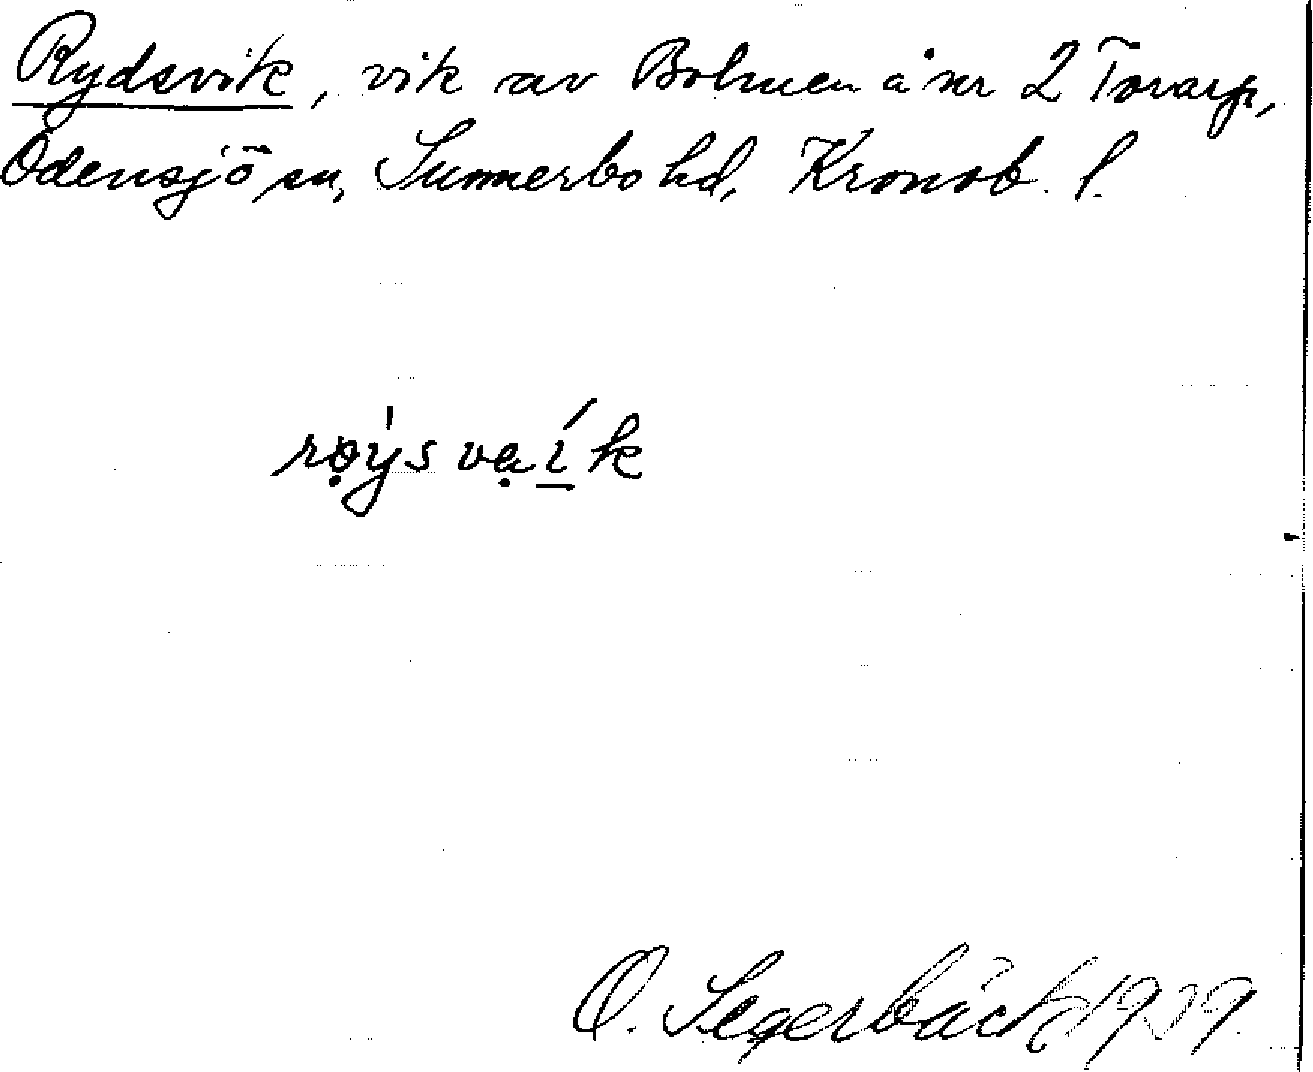 Rydsvik, vik av Bolmen å nr 2 Torarp,
Odensjö sn, Sunnerbo hd, Kronob. l.
rọýsvạík
O. Segerbäck 1939.